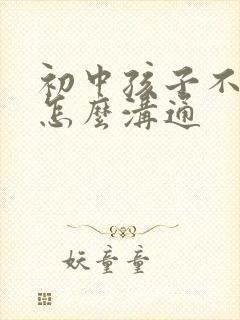 初中孩子不
怎麼溝通
妖童童